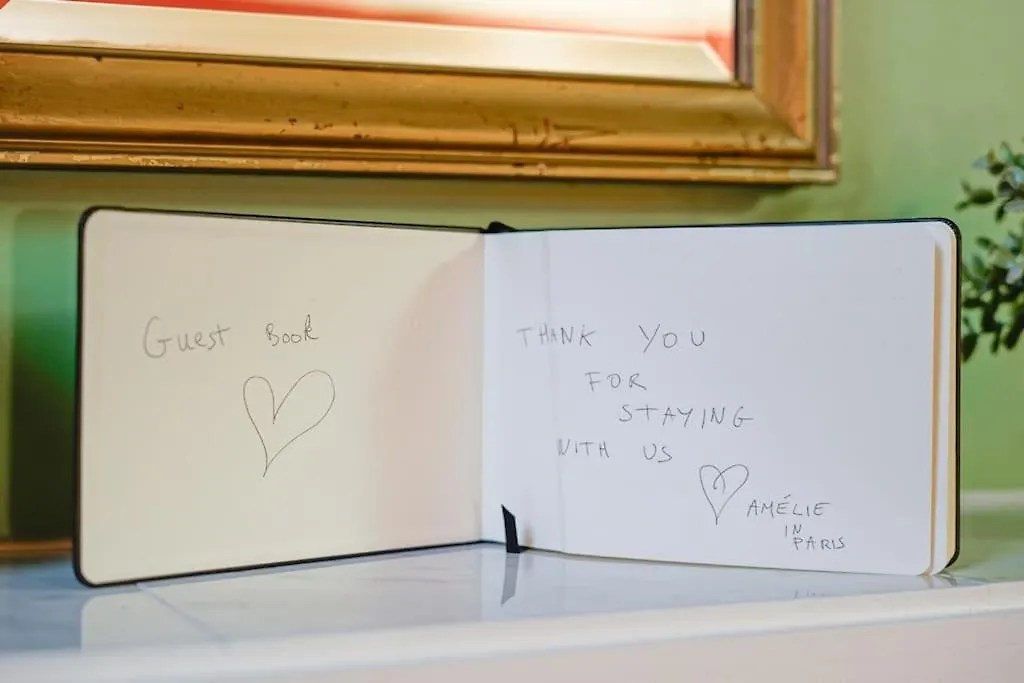 Guest Book
THANK YOU
FOR
STAYING
WITH US
AMÉLIE
IN
PARIS